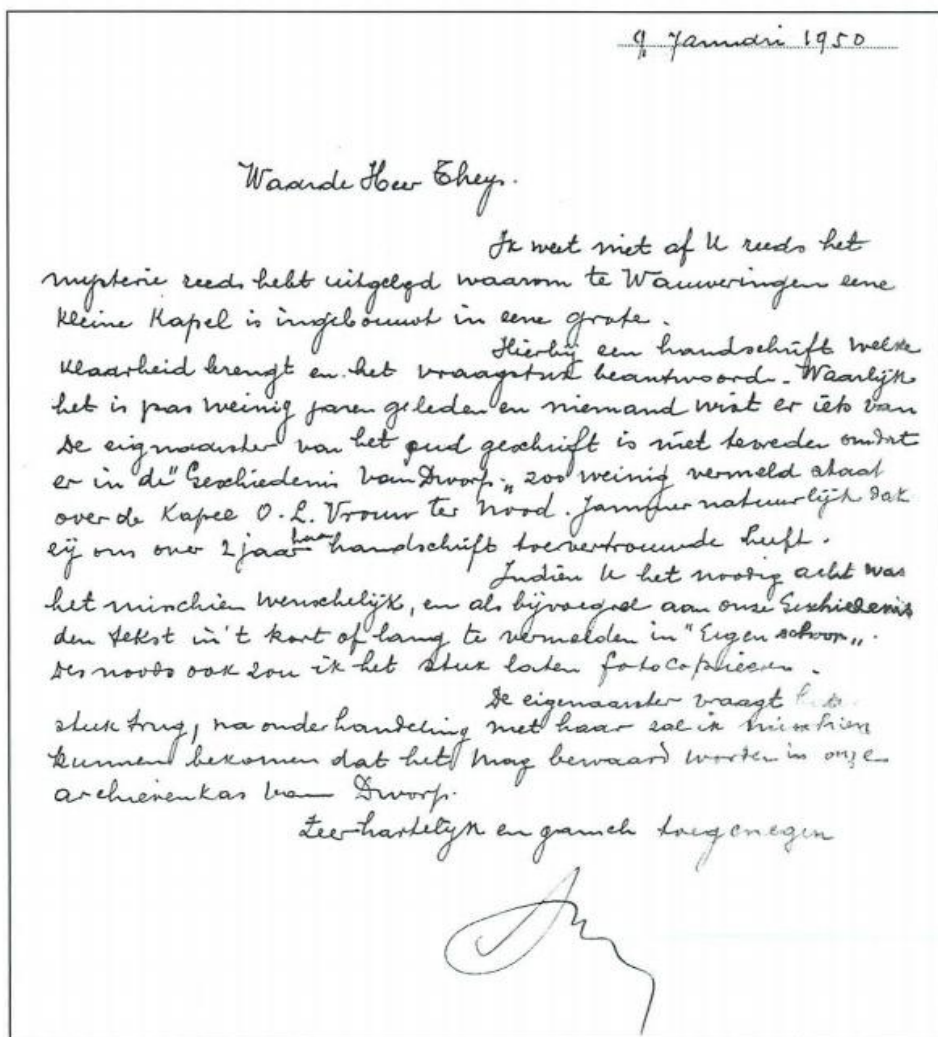 9 Januari 1950
Waarde Heer Theys.
Ik weet niet af U reeds het
mysterie reeds hebt uitgelgd waarom te Wauweringen eene
kleine Kapel is ingebouwt in eene grote.
Hierbij een handschrift welke
klaarheid brengt en het vraagstuk beantwoord. Waarlijk
het is pas weinig jaren geleden en niemand wist er iets van
De eignaarster van het oud geschrift is niet tevreden omdat
er in de "Geschiedenis van Dworp" zoo weinig vermeld staat
over de Kapel O. L. Vrouw ter Nood. Jammer natuurlijk dat
zij ons over 2 jaar haar handschrift toevertrouwde heeft.
Indien U het noodig acht was
het minschien wenschelijk, en als bijvoegsel aan onze Geschiedenis
den tekst in 't kort of lang te vermelden in "Eigen schoon".
Des noods ook zou ik het stuk laten fotocopieeren.
De eigenaarster vraagt
stuk trug, na onderhandeling met haar zal ik minschien
kunnen bekomen dat het mag bewaard worden in onze
archievenkas van Dworp.
Zeer hartelijk en gansch toegenegen